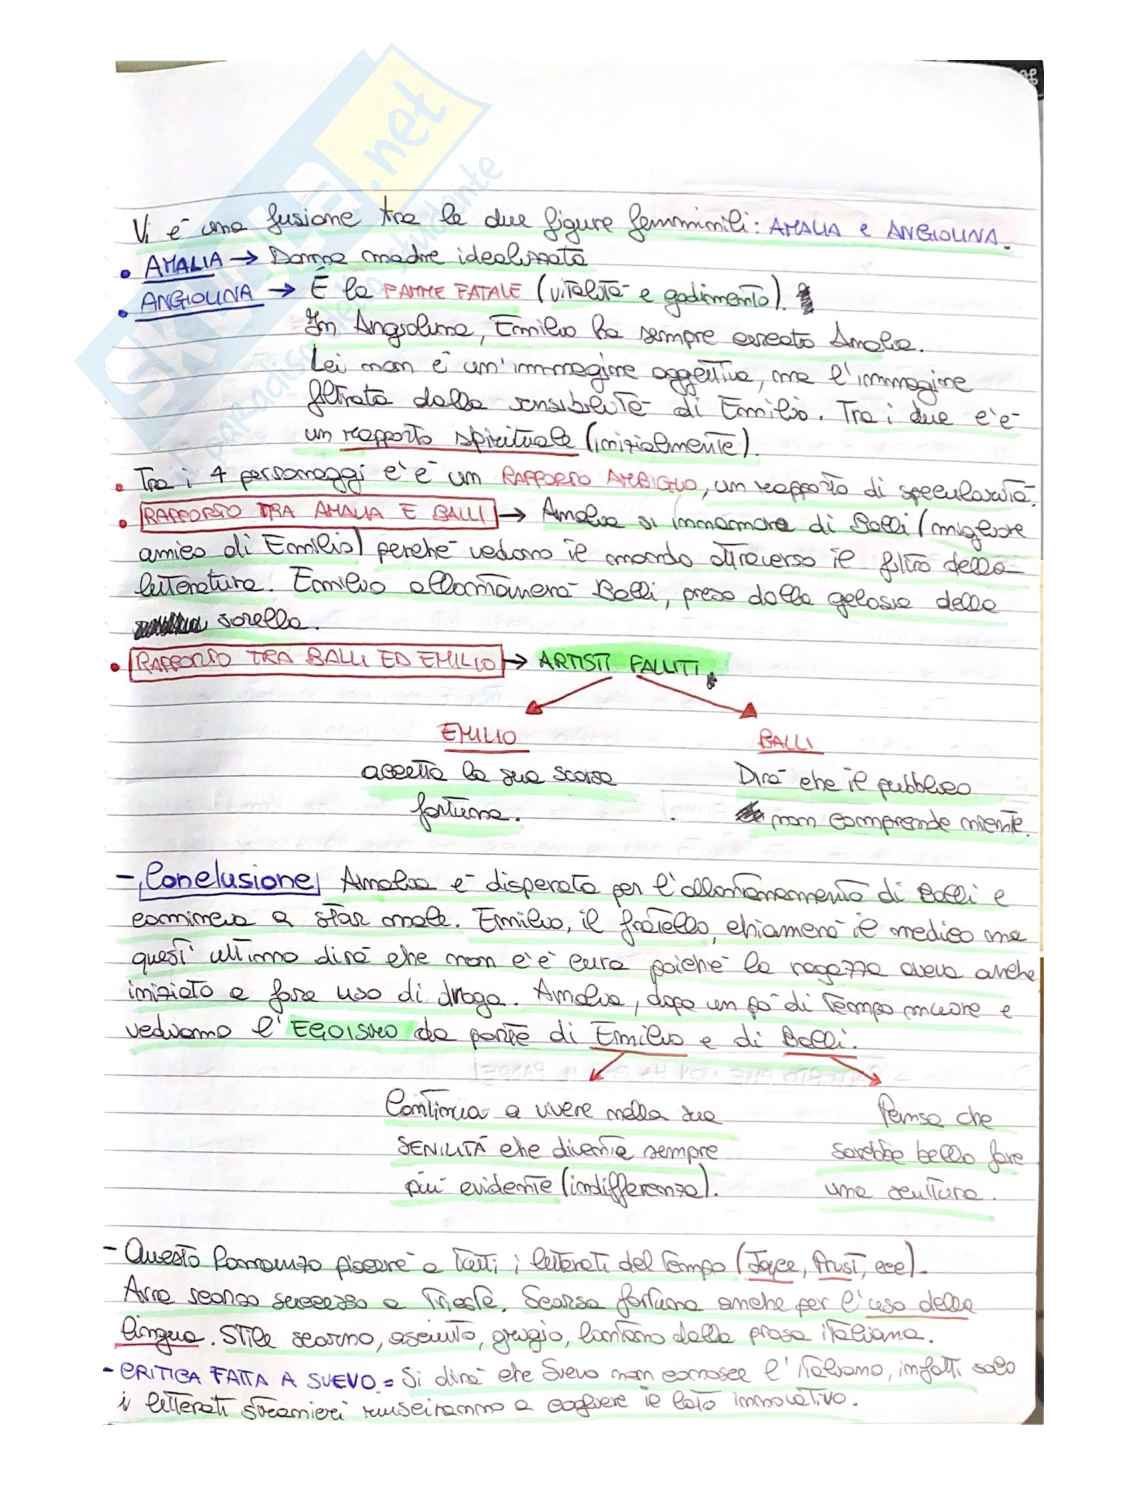 SKUOLA.net
Vi è una fusione tra le due figure femminili: AMALIA e ANGIOLINA.
• AMALIA → Donna madre idealizzata
• ANGIOLINA → È la FAMME FATALE (vitalità e godimento).
In Angiolina, Emilio ha sempre cercato Amalia.
Lei non è un'immagine oggettiva, ma l'immagine
filtrata dalla sensibilità di Emilio. Tra i due c'è
un rapporto spirituale (inizialmente).
• Tra i 4 personaggi c'è un RAPPORTO AMBIGUO, un rapporto di specularità.
• RAPPORTO TRA AMALIA E BALLI → Amalia si innamora di Balli (migliore
amico di Emilio) perché vedono il mondo attraverso il filtro della
letteratura. Emilio allontanerà Balli, preso dalla gelosia della
sorella.
• RAPPORTO TRA BALLI ED EMILIO → ARTISTI FALLITI.
EMILIO BALLI
accetta la sua scarsa Dirà che il pubblico
fortuna. non comprende niente.
- Conclusione Amalia è disperata per l'allontanamento di Balli e
comincia a star male. Emilio, il fratello, chiamerà il medico ma
quest'ultimo dirà che non c'è cura poiché la ragazza aveva anche
iniziato a fare uso di droga. Amalia, dopo un pò di tempo muore e
vediamo l'EGOISMO da parte di Emilio e di Balli.
Continua a vivere nella sua Pensa che
SENILITÀ che diventa sempre sarebbe bello fare
più evidente (indifferenza). una scultura.
- Questo Romanzo piacerà a tutti i letterati del tempo (Joyce, Prust, ecc).
Avrà scarso successo a Trieste. Scarsa fortuna anche per l'uso della
lingua. Stile scarno, asciutto, grigio, lontano dalla prosa italiana.
- CRITICA FATTA A SVEVO = Si dirà che Svevo non conosce l'italiano, infatti solo
i letterati stranieri riusciranno a cogliere il lato innovativo.